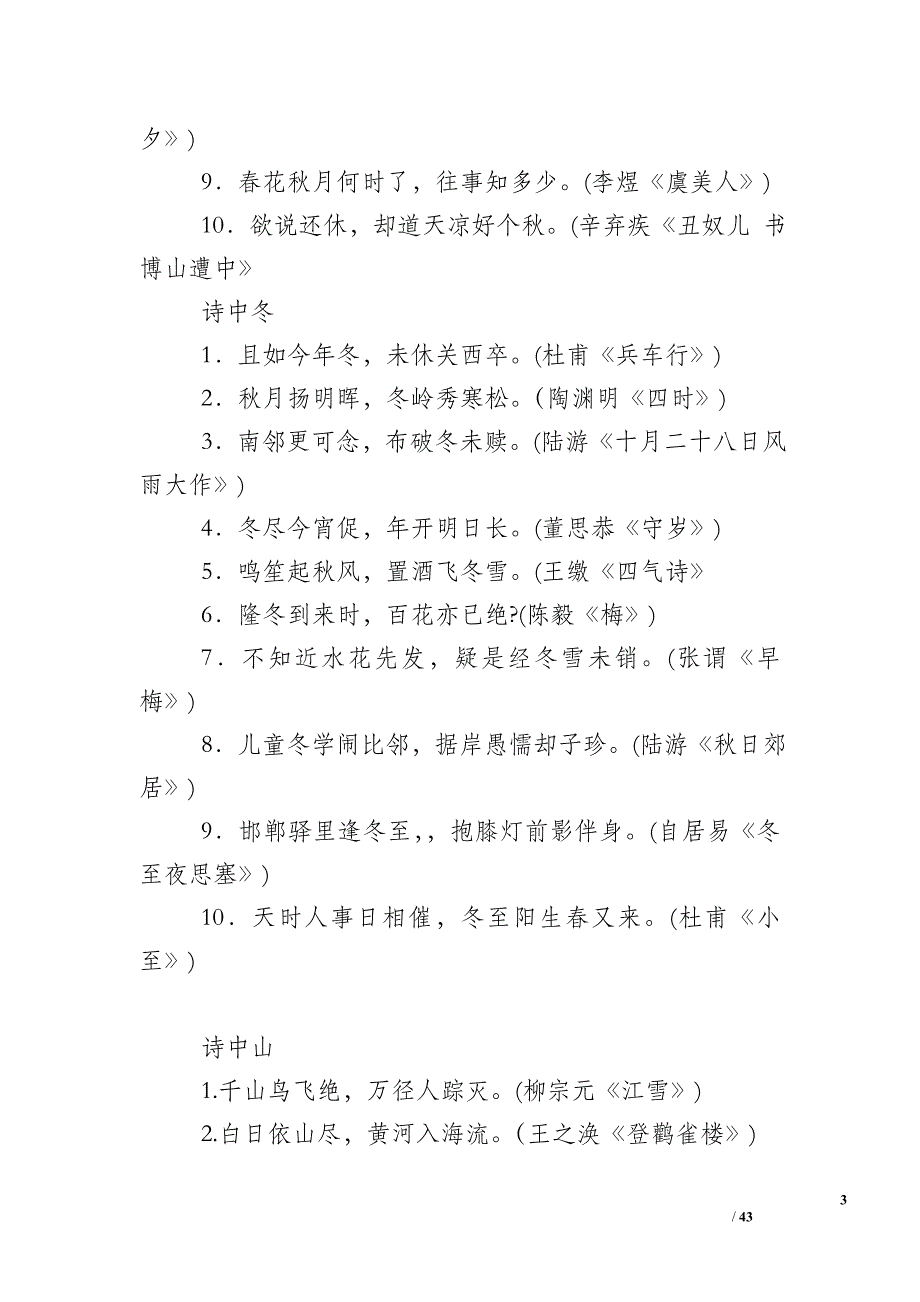 夕》)
9．春花秋月何时了，往事知多少。(李煜《虞美人》)
10．欲说还休，却道天凉好个秋。(辛弃疾《丑奴儿 书
博山遭中》
诗中冬
1．且如今年冬，未休关西卒。(杜甫《兵车行》)
2．秋月扬明晖，冬岭秀寒松。（陶渊明《四时》)
3．南邻更可念，布破冬未赎。(陆游《十月二十八日风
雨大作》)
4．冬尽今宵促，年开明日长。(董思恭《守岁》)
5．鸣笙起秋风，置酒飞冬雪。(王缴《四气诗》
6．隆冬到来时，百花亦已绝?(陈毅《梅》)
7．不知近水花先发，疑是经冬雪未销。(张谓《早
梅》)
8．儿童冬学闹比邻，据岸愚懦却子珍。(陆游《秋日郊
居》)
9．邯郸驿里逢冬至,，抱膝灯前影伴身。(自居易《冬
至夜思塞》)
10．天时人事日相催，冬至阳生春又来。(杜甫《小
至》)
诗中山
1.千山鸟飞绝，万径人踪灭。(柳宗元《江雪》)
2.白日依山尽，黄河入海流。（王之涣《登鹳雀楼》)
3
/ 43